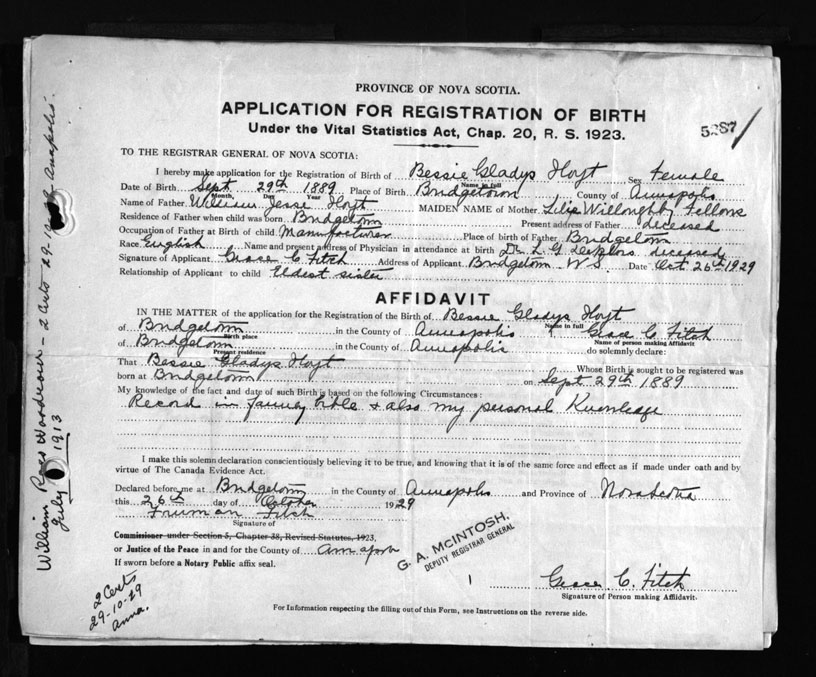 PROVINCE OF NOVA SCOTIA.
APPLICATION FOR REGISTRATION OF BIRTH
Under the Vital Statistics Act, Chap. 20, R. S. 1923.
5287
TO THE REGISTRAR GENERAL OF NOVA SCOTIA:
I hereby make application for the Registration of Birth of Bessie Gladys Hoyt Sex Female
Name in full
Date of Birth Sept 29th 1889 Place of Birth Bridgetown County of Annapolis
Month, Day Year
Name of Father William Jesse Hoyt MAIDEN NAME of Mother Willoughby Fellows
Residence of Father when child was born Bridgetown Present address of Father deceased
Occupation of Father at Birth of child Manufacturer Place of birth of Father Bridgetown
Race English Name and present address of Physician in attendance at birth Dr. L. G. deceased
Signature of Applicant Grace C Fitch Address of Applicant Bridgetown N.S. Date Oct. 26th 1929
Relationship of Applicant to child Eldest sister
AFFIDAVIT
IN THE MATTER of the application for the Registration of the Birth of Bessie Gladys Hoyt
Name in full
of Bridgetown in the County of Annapolis I Grace C. Fitch
Birth place
Name of person making Affidavit
of Bridgetown in the County of Annapolis do solemnly declare:
Present residence
That Bessie Gladys Hoyt Whose Birth is sought to be registered was
born at Bridgetown on Sept. 29th 1889
My knowledge of the fact and date of such Birth is based on the following Circumstances:
Record in family bible & also my personal Knowledge
I make this solemn declaration conscientiously believing it to be true, and knowing that it is of the same force and effect as if made under oath and by
virtue of The Canada Evidence Act.
Declared before me at Bridgetown in the County of Annapolis and Province of Nova Scotia
this 26th day of October 1929
Truman Fitch
Signature of
Commissioner under Section 5, Chapter 38, Revised Statutes, 1923,
or Justice of the Peace in and for the County of Annapolis
If sworn before a Notary Public affix seal.
G. A. McINTOSH,
DEPUTY REGISTRAR GENERAL
1
Grace C. Fitch
Signature of Person making Affidavit.
For Information respecting the filling out of this Form, see Instructions on the reverse side.
William Ross Woodrow - 2 Certs 29-10-29 Anapolis.
July 1913
2 Certs
29-10-29
Anna.